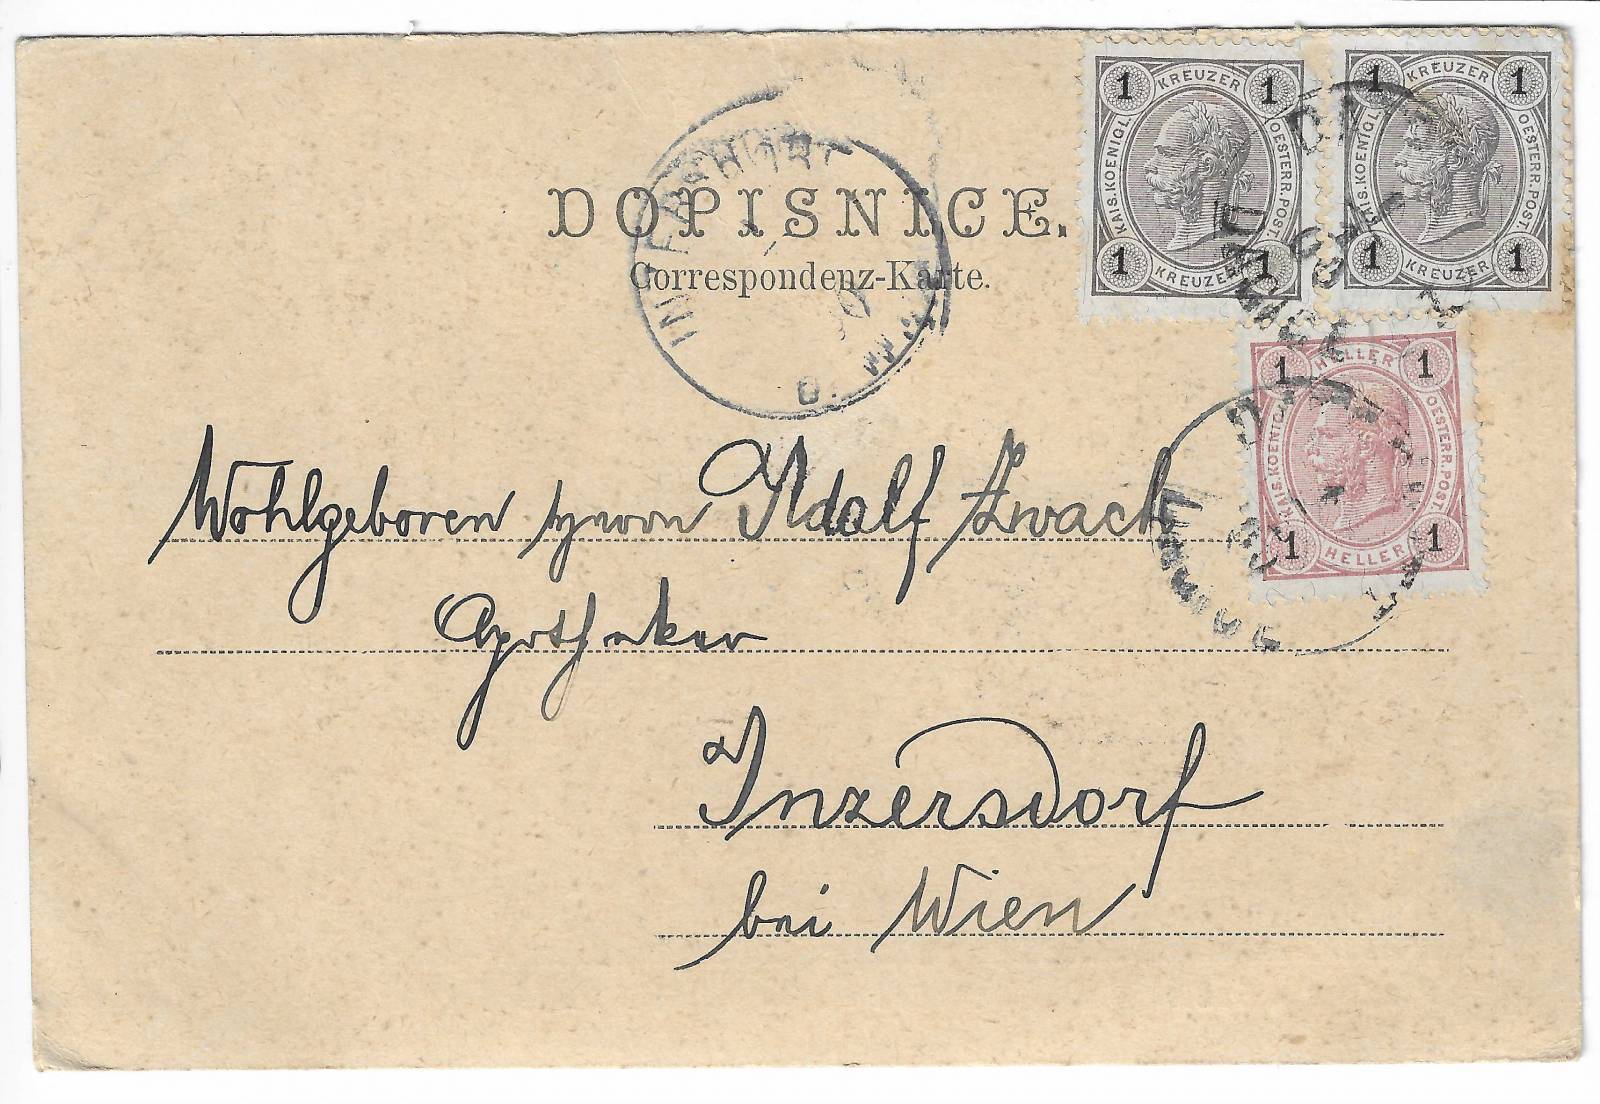 DOPISNICE.
Correspondenz-Karte.
1 KREUZER 1
KAIS. KOENIGL. OESTERR. POST.
1 KREUZER 1
1 KREUZER 1
KAIS. KOENIGL. OESTERR. POST.
1 KREUZER 1
1 HELLER 1
KAIS. KOENIGL. OESTERR. POST.
1 HELLER 1
Wohlgeboren Herrn Adolf Zwach
Apotheker
Inzersdorf
bei Wien